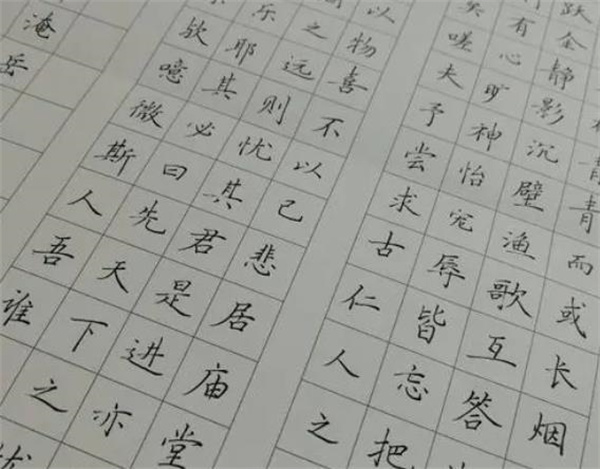 青青而或长烟
跃金静影沉璧渔歌互答
有心旷神怡宠辱皆忘把
矣嗟夫予尝求古仁人之
以物喜不以己悲居庙堂
之远则忧其君是进亦
乐耶其必曰先天下之
欤噫微斯人吾谁
淹岳